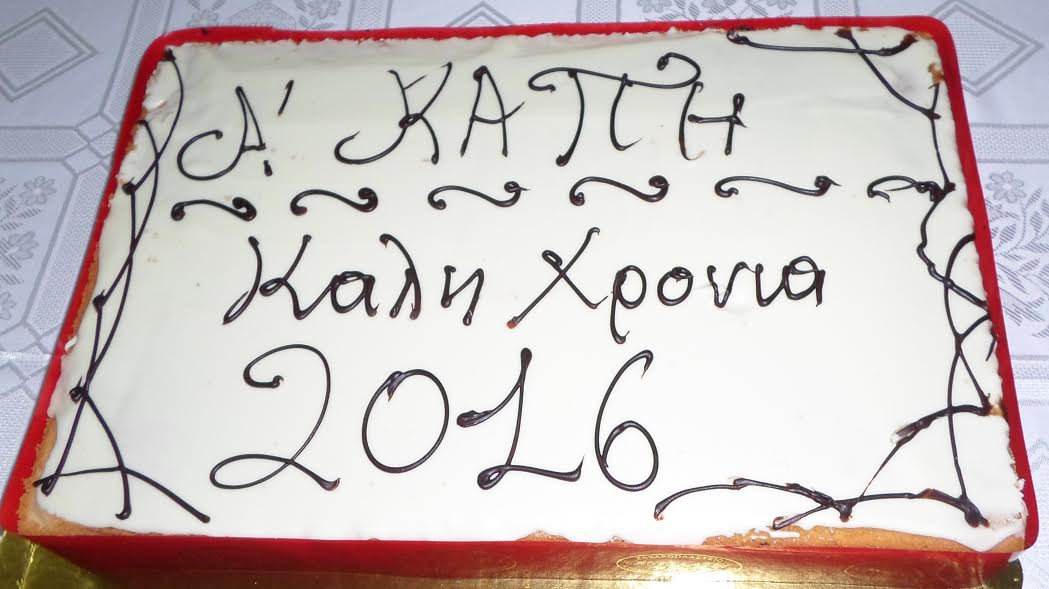 Α' ΚΑΠΗ
Καλη Χρονια
2016